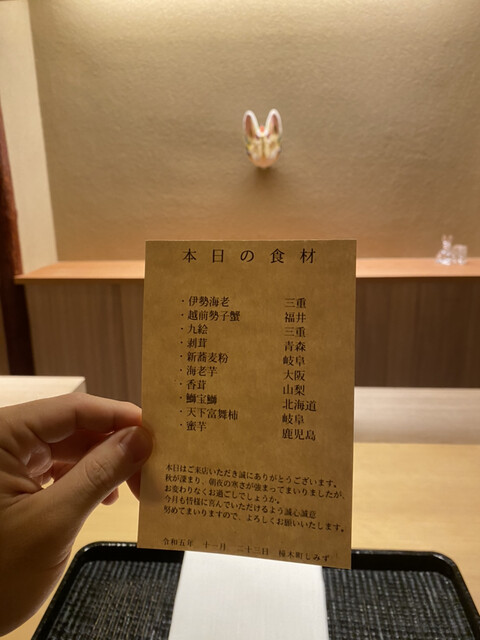 本日の食材
・伊勢海老 三重
・越前勢子蟹 福井
・九絵 三重
・剥茸 青森
・新蕎麦粉 岐阜
・海老芋 大阪
・香茸 山梨
・鰤宝鰤 北海道
・天下富舞柿 岐阜
・蜜芋 鹿児島
本日はご来店いただき誠にありがとうございます。
秋が深まり、朝夜の寒さが強まってまいりましたが、
お変わりなくお過ごしでしょうか。
今月も皆様に喜んでいただけるよう誠心誠意
努めてまいりますので、よろしくお願いいたします。
令和五年 十一月 二十二日 しみず